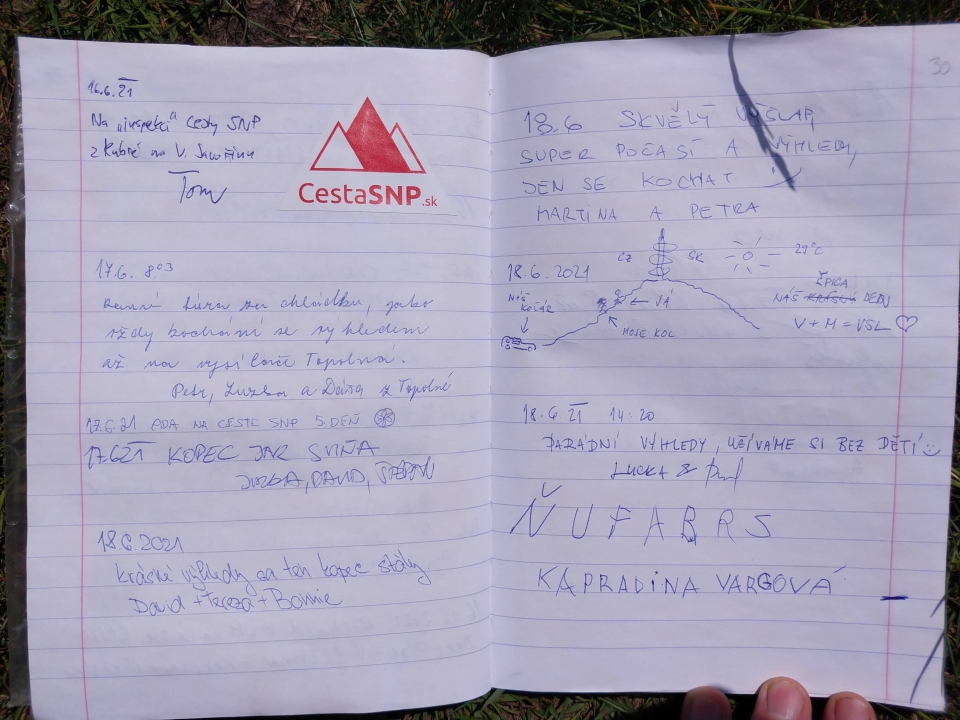 16.6.21
Na „inspekci" Cesty SNP
z Kubré na V. Javořinu
Tom
CestaSNP.sk
17.6. 8⁰³
Ranní túra za chládku, jako
vždy kochání se výhledem
až na vysílač Topolná.
Petr, Zuzka a Dáša z Topolné
17.6.21 ADA NA CESTE SNP 5.DEŇ
17.6.21 KOPEC JAK SVIŇA
JIRKA, DAVID, ŠTĚPÁN
18.6.2021
Krásné výhledy za ten kopec stály
David + Tereza + Bonnie
30
18.6 SKVĚLÝ VÝŠLAP,
SUPER POČASÍ A VÝHLEDY,
JEN SE KOCHAT
MARTINA A PETRA
CZ SK 27°C
18.6.2021
NÁŠ
ŠPICA
NÁŠ KRÁSNÝ DEŇ
VÁ
V + M = VSL
MOJE KOL
18.6.21 14:20
PARÁDNÍ VÝHLEDY, UŽÍVÁME SI BEZ DĚTÍ
LUCKA &
ŇUFABRS
KAPRADINA VARGOVÁ